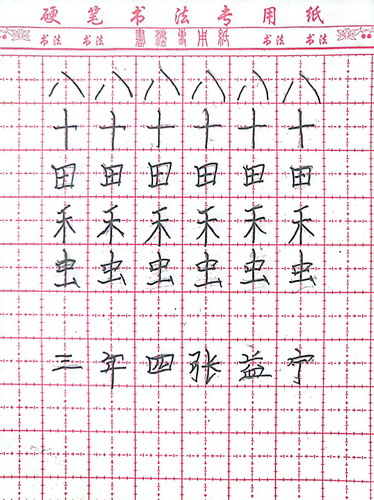 硬笔书法专用纸
书法 书法 書法專用紙 书法 书法
八八八八八八
十十十十十十
田田田田田田
禾禾禾禾禾禾
虫虫虫虫虫虫
三年四张益宁